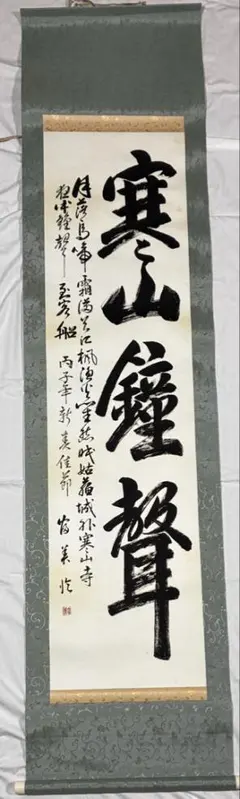 寒山鐘聲
月落烏啼霜满天江楓渔火對愁眠姑蘇城外寒山寺
夜半鐘聲到客船 丙子年新春佳節